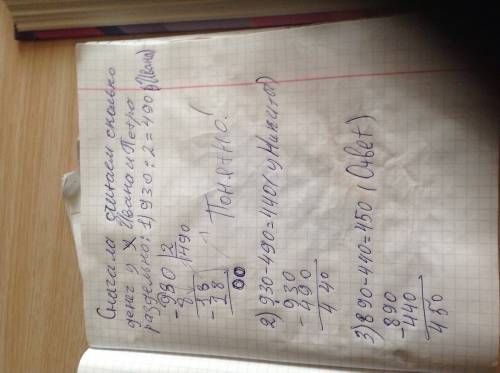 Сначала считаем сколько
денег у Ивана и Петра
раздельно: 1) 930 : 2 = 490 (у Ивана)
930 | 2
- 8 | 490
18
- 18
00
Понятно!
2) 930 - 490 = 440 (у Никиты)
930
- 490
440
3) 890 - 440 = 450 (Ответ)
890
- 440
450